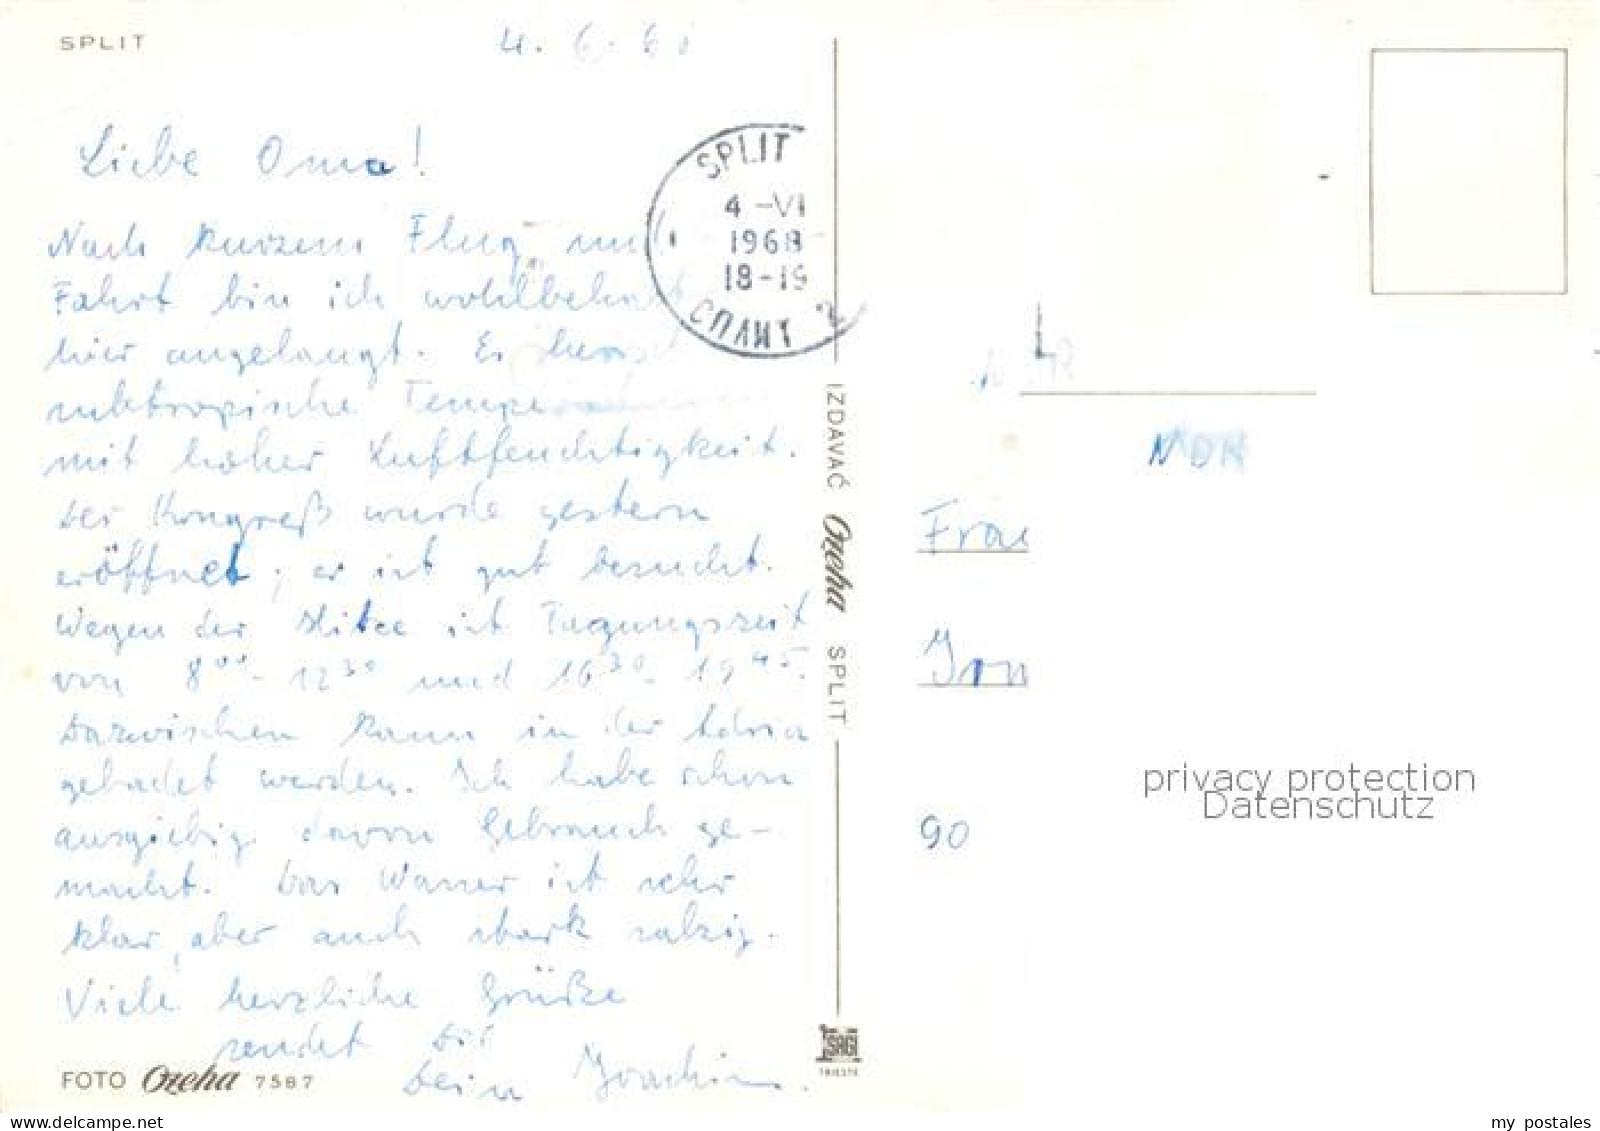 SPLIT
4. 6. 6
Liebe Oma!
Nach kurzem Flug und
Fahrt bin ich wohlbehalt
hier angelangt. Es herrsch
subtropische Tempe
mit hoher Luftfeuchtigkeit.
Der Kongreß wurde gestern
eröffnet; er ist gut besucht.
Wegen der Hitze ist Tagungszeit
von 8⁰⁰ - 12³⁰ und 16³⁰ - 19⁴⁵.
Dazwischen kann in der Adria
gebadet werden. Ich habe schon
ausgiebig davon Gebrauch ge-
macht. Das Wasser ist sehr
klar, aber auch stark salzig.
Viele herzliche Grüße
sendet Dir
Dein Joachim.
FOTO Ozeha 7587
SPLIT
4 -VI
1968
18-19
СПЛИТ 2
IZDAVAČ Ozeha SPLIT
SAGI
TRIESTE
NDR
Frau
90
privacy protection
Datenschutz
my postales